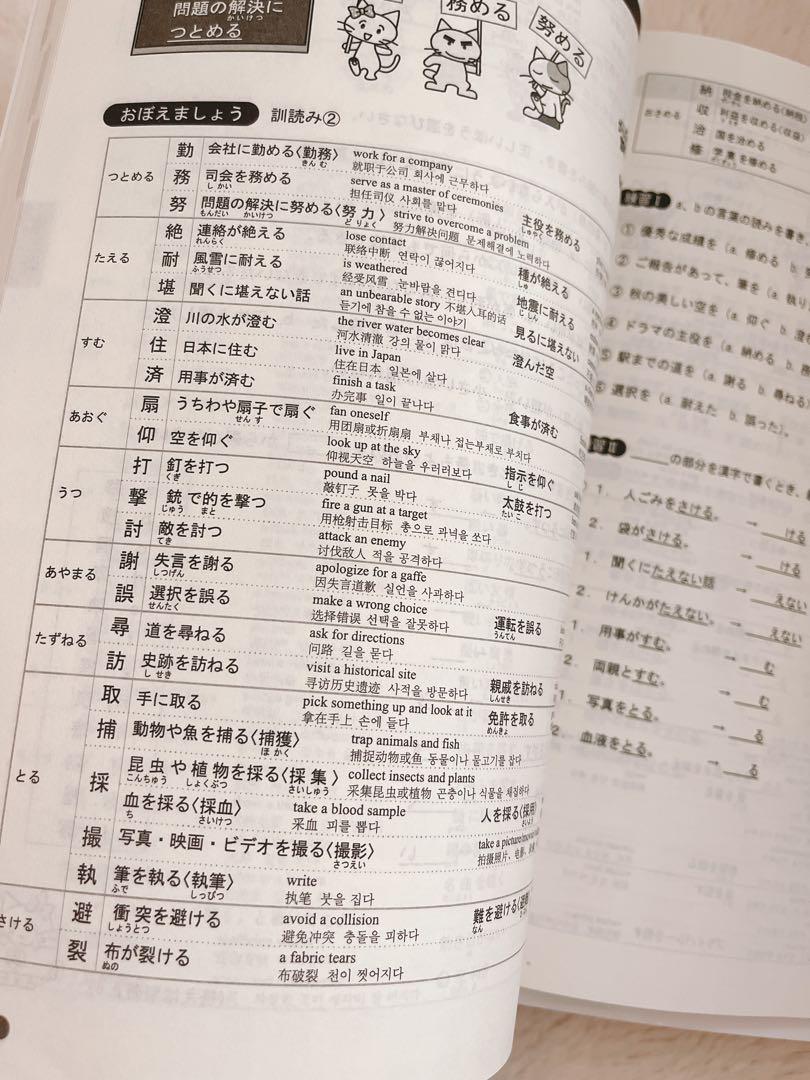 問題の解決に
かいけつ
つとめる
務める
努める
おぼえましょう 訓読み②
つとめる
勤 会社に勤める〈勤務〉 work for a company
きんむ 就职于公司 회사에 근무하다
務 司会を務める serve as a master of ceremonies 主役を務める
しかい 担任司仪 사회를 맡다 しゅやく
努 問題の解決に努める〈努力〉 strive to overcome a problem
もんだい かいけつ どりょく 努力解决问题 문제해결에 노력하다
たえる
絶 連絡が絶える lose contact 種が絶える
れんらく 联络中断 연락이 끊어지다 しゅ
耐 風雪に耐える is weathered 地震に耐える
ふうせつ 经受风雪 눈바람을 견디다 じしん
堪 聞くに堪えない話 an unbearable story 不堪入耳的话 見るに堪えない
듣기에 참을 수 없는 이야기
すむ
澄 川の水が澄む the river water becomes clear 澄んだ空
河水清澈 강의 물이 맑다
住 日本に住む live in Japan
住在日本 일본에 살다
済 用事が済む finish a task 食事が済む
办完事 일이 끝나다
あおぐ
扇 うちわや扇子で扇ぐ fan oneself
せんす 用团扇或折扇扇 부채나 접는부채로 부치다
仰 空を仰ぐ look up at the sky 指示を仰ぐ
仰视天空 하늘을 우러러보다 しじ
うつ
打 釘を打つ pound a nail 太鼓を打つ
くぎ 敲钉子 못을 박다 たいこ
撃 銃で的を撃つ fire a gun at a target
じゅう まと 用枪射击目标 총으로 과녁을 쏘다
討 敵を討つ attack an enemy
てき 讨伐敌人 적을 공격하다
あやまる
謝 失言を謝る apologize for a gaffe
しつげん 因失言道歉 실언을 사과하다
誤 選択を誤る make a wrong choice 運転を誤る
せんたく 选择错误 선택을 잘못하다 うんてん
たずねる
尋 道を尋ねる ask for directions
问路 길을 묻다
訪 史跡を訪ねる visit a historical site 親戚を訪ねる
しせき 寻访历史遗迹 사적을 방문하다 しんせき
とる
取 手に取る pick something up and look at it 免許を取る
拿在手上 손에 들다 めんきょ
捕 動物や魚を捕る〈捕獲〉 trap animals and fish
ほかく 捕捉动物或鱼 동물이나 물고기를 잡다
採 昆虫や植物を採る〈採集〉 collect insects and plants
こんちゅう しょくぶつ さいしゅう 采集昆虫或植物 곤충이나 식물을 채집하다
血を採る〈採血〉 take a blood sample 人を採る〈採用〉
ち さいけつ 采血 피를 뽑다
撮 写真・映画・ビデオを撮る〈撮影〉 take a picture
さつえい 拍摄照片、电影、
執 筆を執る〈執筆〉 write
ふで しっぴつ 执笔 붓을 집다
さける
避 衝突を避ける avoid a collision 難を避ける
しょうとつ 避免冲突 충돌을 피하다 なん
裂 布が裂ける a fabric tears
ぬの 布破裂 천이 찢어지다
おさめる
納 税金を納める〈納税〉
収 利益を収める〈収益〉
治 国を治める
修 学業を修める
練習Ⅰ a、bの言葉の読みを書き、
① 優秀な成績を（a. 修める b.
② ご報告があって、筆を（a. 執り
③ 秋の美しい空を（a. 仰ぐ b.
④ ドラマの主役を（a. 納める b.
⑤ 駅までの道を（a. 謝る b. 尋ねる）
⑥ 選択を（a. 耐えた b. 誤った）。
の部分を漢字で書くとき、
1. 人ごみをさける。 → ける
2. 袋がさける。 → ける
1. 聞くにたえない話 → えない
2. けんかがたえない。 → えない
1. 用事がすむ。 → む
2. 両親とすむ。 → む
1. 写真をとる。 → る
2. 血液をとる。 → る